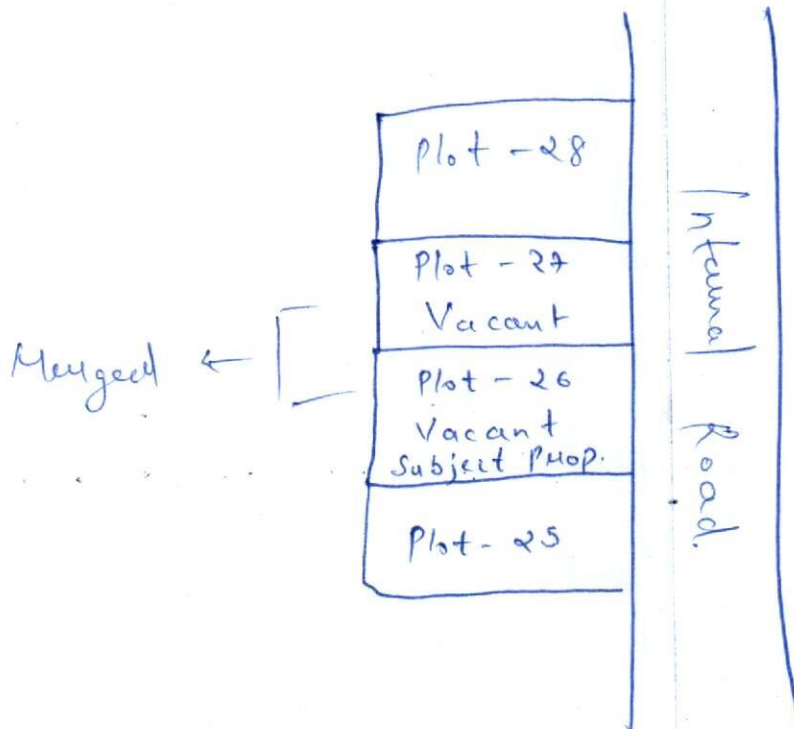 Plot - 28
Plot - 27
Vacant
Merged
Plot - 26
Vacant
Subject Prop.
Plot - 25
Internal Road.